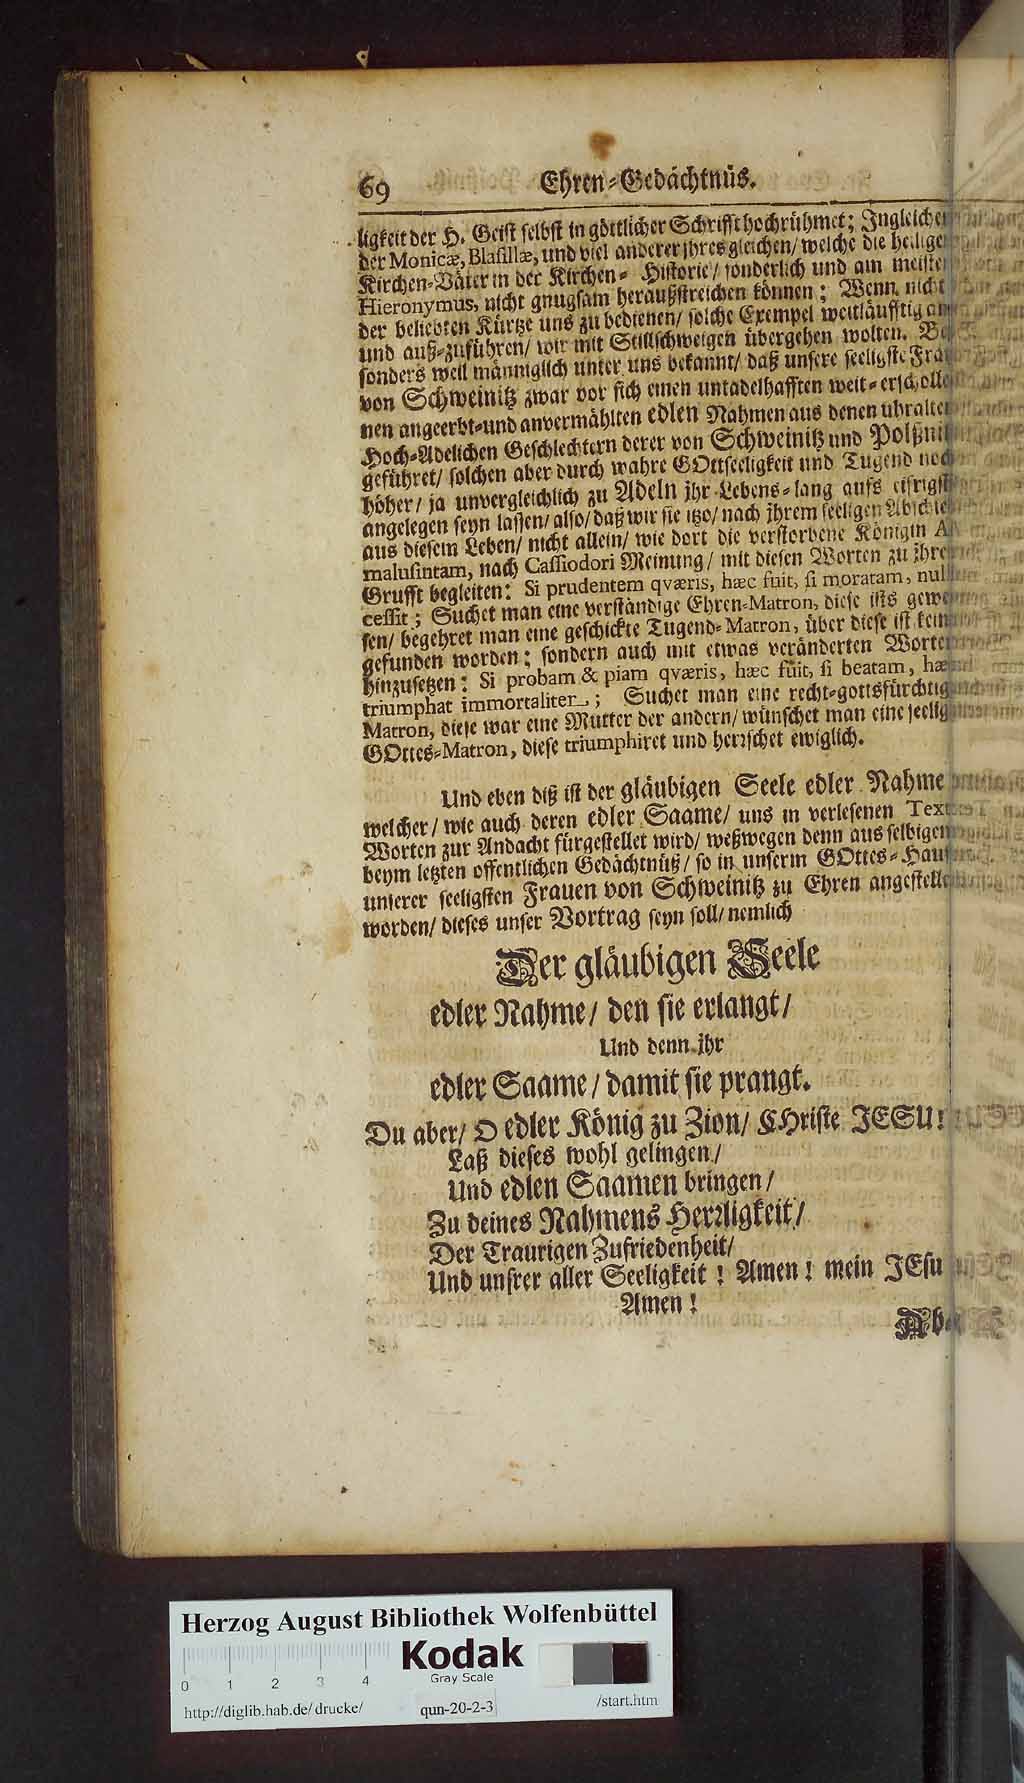 69 Ehren-Gedächtnüs.
ligkeit der H. Geist selbst in göttlicher Schrifft hochrühmet; Ingleiche
der Monicæ, Blasillæ, und viel anderer jhres gleichen/ welche die heilige
Kirchen-Väter in der Kirchen- Historie/ sonderlich und am meiste
Hieronymus, nicht gnugsam heraußstreichen können; Wenn nicht
der beliebten Kürtze uns zu bedienen/ solche Exempel weitläufftig an
und auß-zuführen/ wir mit Stillschweigen übergehen wolten. Be
sonders weil männiglich unter uns bekannt/ daß unsere seeligste Fra
von Schweinitz zwar vor sich einen untadelhafften weit-erscholle
nen angeerbt-und anvermählten edlen Nahmen aus denen uhralte
Hoch-Adelichen Geschlechtern derer von Schweinitz und Polßni
geführet/ solchen aber durch wahre GOttseeligkeit und Tugend noc
höher/ ja unvergleichlich zu Adeln jhr Lebens-lang aufs eifrigst
angelegen seyn lassen/ also/ daß wir sie itzo/ nach jhrem seeligen Abschie
aus diesem Leben/ nicht allein/ wie dort die verstorbene Königin A
malusintam, nach Cassiodori Meinung/ mit diesen Worten zu jhre
Grufft begleiten: Si prudentem qværis, hæc fuit, si moratam, nul
cessit; Suchet man eine verständige Ehren-Matron, diese ists gewe
sen/ begehret man eine geschickte Tugend-Matron, über diese ist kein
gefunden worden; sondern auch mit etwas veränderten Worte
hinzusetzen: Si probam & piam qværis, hæc fuit, si beatam, hæ
triumphat immortaliter; Suchet man eine recht-gottsfürchtig
Matron, diese war eine Mutter der andern/ wünschet man eine seelig
GOttes-Matron, diese triumphiret und herrschet ewiglich.
Und eben diß ist der gläubigen Seele edler Nahme
welcher/ wie auch deren edler Saame/ uns in verlesenen Text
Worten zur Andacht fürgestellet wird/ weßwegen denn aus selbigen
beym letzten offentlichen Gedächtnüß/ so in unserm GOttes-Haus
unserer seeligsten Frauen von Schweinitz zu Ehren angestelle
worden/ dieses unser Vortrag seyn soll/ nemlich
Der gläubigen Seele
edler Nahme/ den sie erlangt/
Und denn jhr
edler Saame/ damit sie prangt.
Du aber/ O edler König zu Zion/ CHriste JESU!
Laß dieses wohl gelingen/
Und edlen Saamen bringen/
Zu deines Nahmens Herrligkeit/
Der Traurigen Zufriedenheit/
Und unsrer aller Seeligkeit! Amen! mein JEsu
Amen!
Abe
Herzog August Bibliothek Wolfenbüttel
Kodak
Gray Scale
0 1 2 3 4
http://diglib.hab.de/drucke/ qun-20-2-3 /start.htm